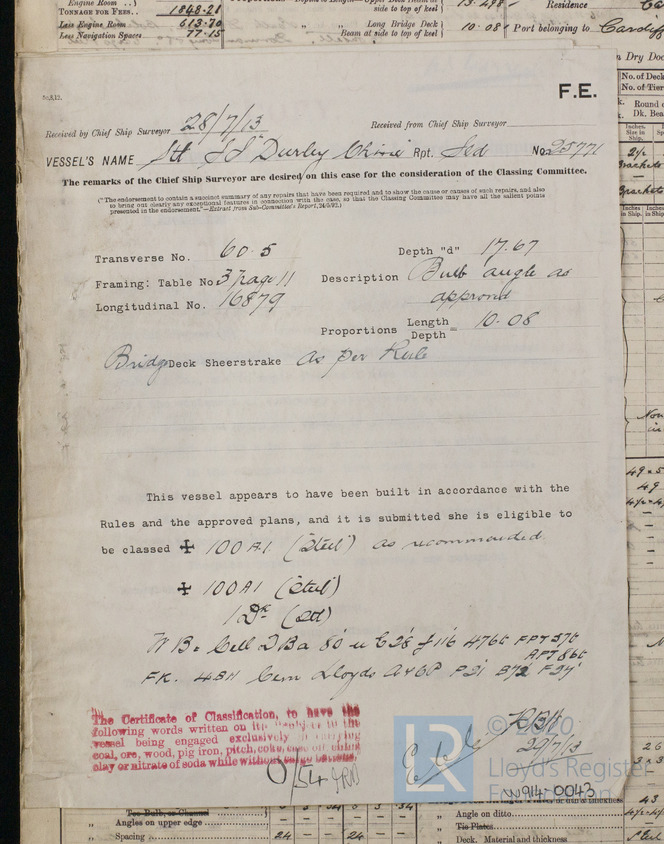 Engine Room
Tonnage for Fees.. 1848.21
Less Engine Room 613.70
Less Navigation Spaces 77.15
side to top of keel
Long Bridge Deck
Beam at side to top of keel
13.498
10.08
Residence
Port belonging to Cardiff
Dry Doc
No. of Deck
No. of Tier
F.E.
Received by Chief Ship Surveyor 28/7/13
Received from Chief Ship Surveyor
VESSEL'S NAME SS "Durley Chine" Rpt. Sld No. 25771
The remarks of the Chief Ship Surveyor are desired on this case for the consideration of the Classing Committee.
(*The endorsement to contain a succinct summary of any repairs that have been required and to show the cause or causes of such repairs, and also
to bring out clearly any exceptional features in connection with the case, so that the Classing Committee may have all the salient points
presented in the endorsement."—Extract from Sub-Committee's Report, 24/9/92.)
Transverse No. 60.5
Depth "d" 17.67
Framing: Table No 3 page 11
Description Bulb angle as
approved
Longitudinal No. 16879
Proportions Length/Depth = 10.08
Bridge Deck Sheerstrake as per Rule
This vessel appears to have been built in accordance with the
Rules and the approved plans, and it is submitted she is eligible to
be classed ✠ 100A1 (Steel) as recommended.
✠ 100A1 (steel)
1 Dk (stl)
W B = Cell D Ba 80' u E 28' f 116' 476t FPT 37t
APT 86t
FK. 4BH Cem Lloyds A & CP P21' B72' F27'
The Certificate of Classification, to have the
following words written on it
vessel being engaged exclusively in carrying
coal, ore, wood, pig iron, pitch, coke, case oil, china
clay or nitrate of soda while without
29/7/13
LR
© 2020
Lloyd's Register
Foundation
W914-0043
Tee Bulb, or Channel
„ Angles on upper edge
„ Spacing 24 24
„ Angle on ditto
„ Tie Plates
„ Deck. Material and thickness